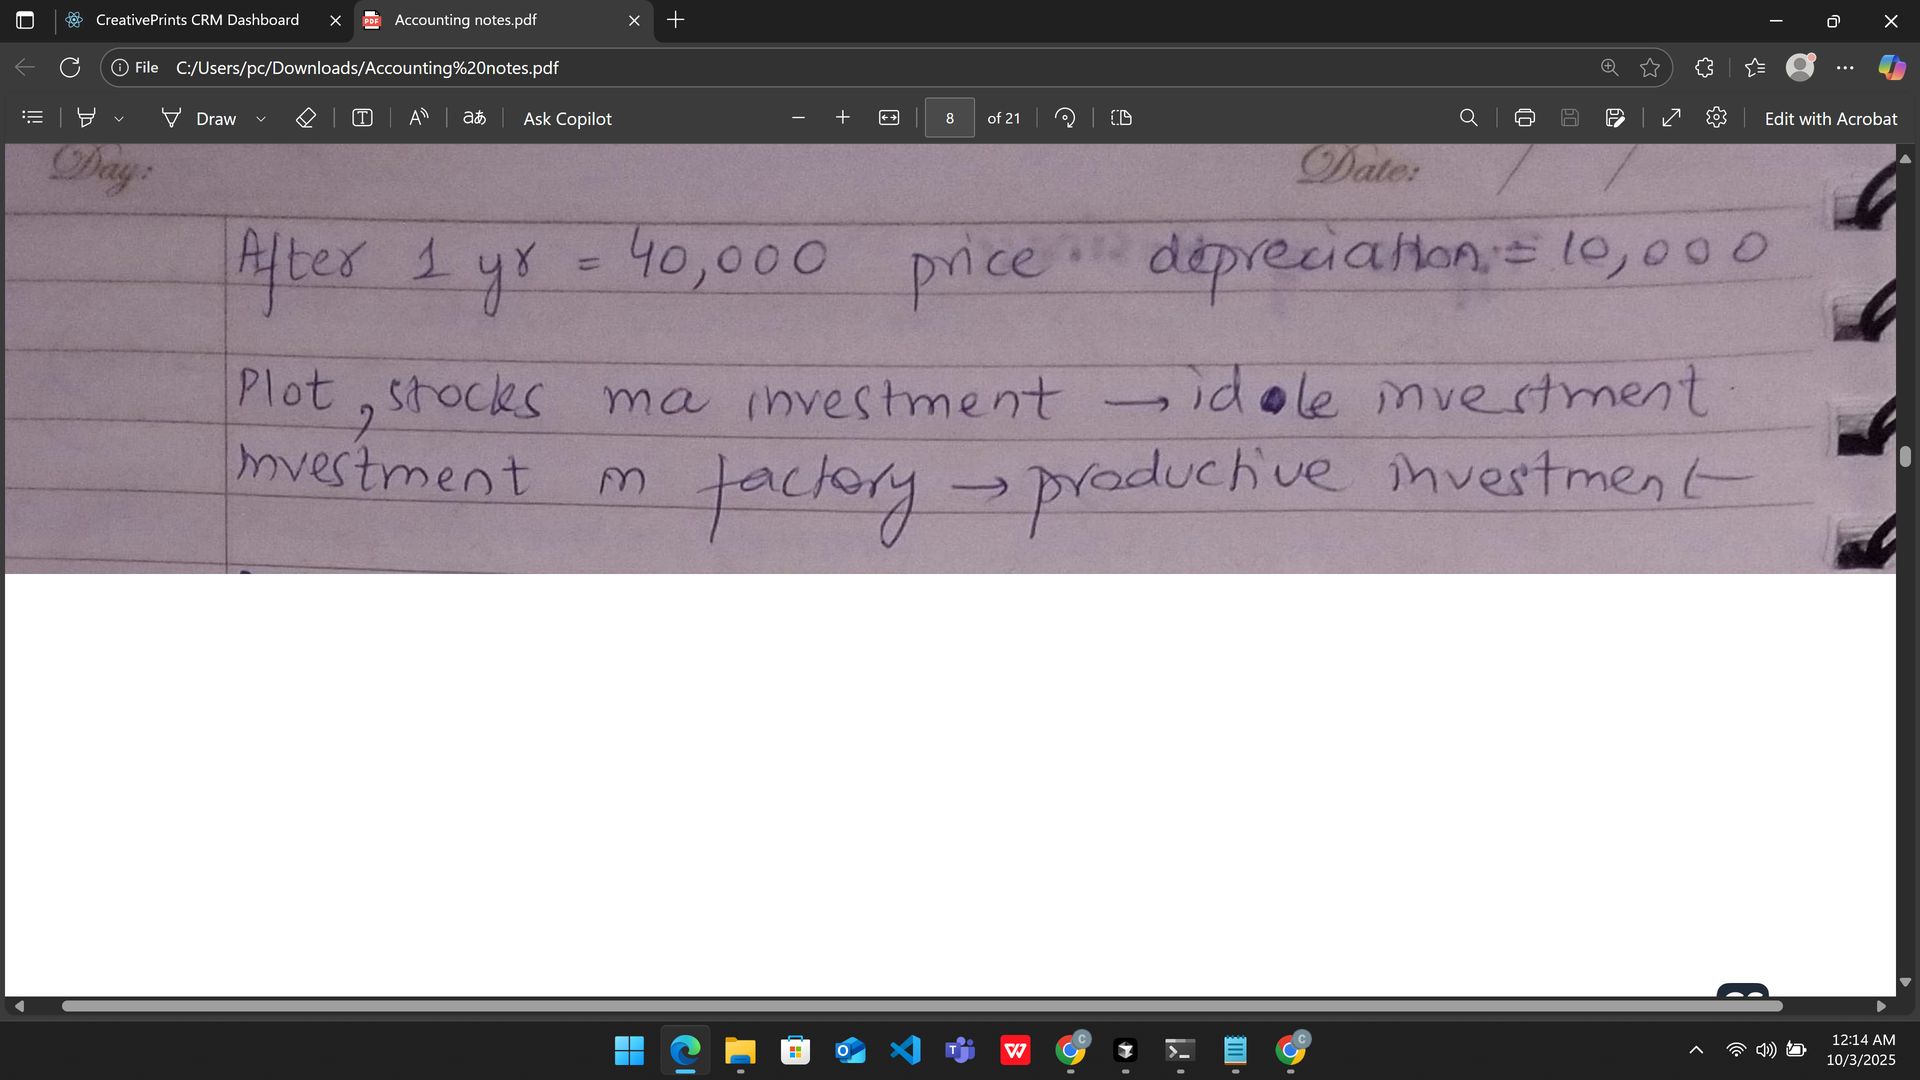 CreativePrints CRM Dashboard
Accounting notes.pdf
File C:/Users/pc/Downloads/Accounting%20notes.pdf
Draw
aあ
Ask Copilot
8 of 21
Edit with Acrobat
Day: Date: / /
After 1 yr = 40,000 price depreciation = 10,000
Plot, stocks ma investment → idole investment
investment in factory → productive investment
12:14 AM
10/3/2025